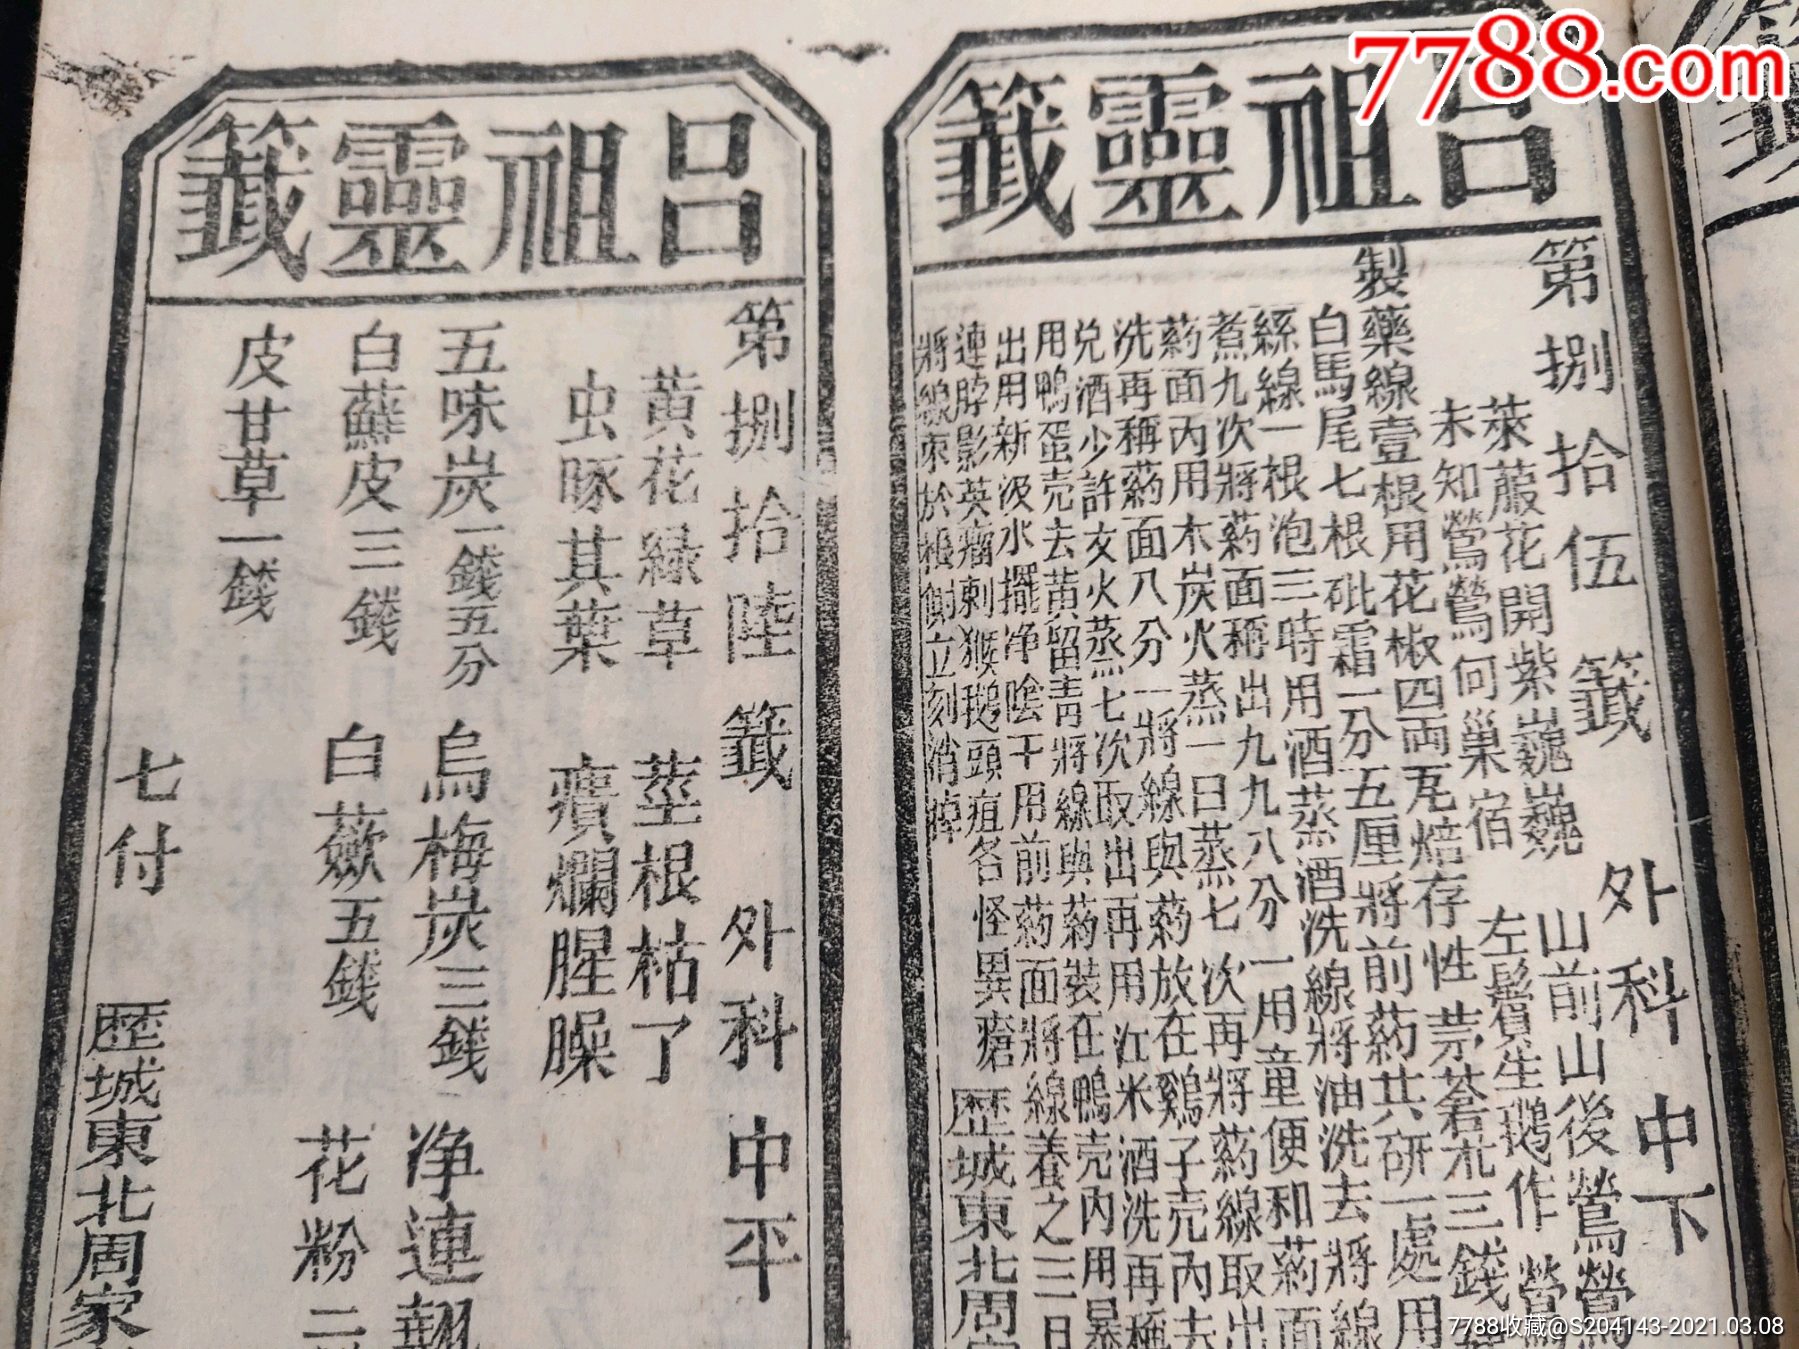 7788.com
呂祖靈籤
第捌拾伍籤 外科 中下
萊菔花開紫巍巍 山前山後鶯鶯
未知鶯鶯何巢宿 左鬢生鵝作鶯
製藥線壹根用花椒四両瓦焙存性茒蒼朮三錢
白馬尾七根砒霜一分五厘將前药共研一處用
絲線一根泡三時用酒蒸酒洗線將油洗去將線
煮九次將药面稱出九九八分一用童便和药面
药面內用木炭火蒸一日蒸七次再將药線取出
洗再稱药面八分一將線與药放在鷄子壳內去
兌酒少許文火蒸七次取出再用江米酒洗再稱
用鴨蛋壳去黃留青將線與药裝在鴨壳內用暴
出用新汲水擺净陰干用前药面將線養之三日
連脖影英瘤刺猴鵝頭疽各怪異瘡
將線束於根側立刻消掉
歷城東北周家
呂祖靈籤
第捌拾陸籤 外科 中平
黃花緑草 莖根枯了
虫啄其葉 㿉爛腥臊
五味炭一錢五分 烏梅炭三錢 净連翹
白蘚皮三錢 白蘞五錢 花粉二
皮甘草一錢
七付 歷城東北周家
7788收藏@S204143-2021.03.08